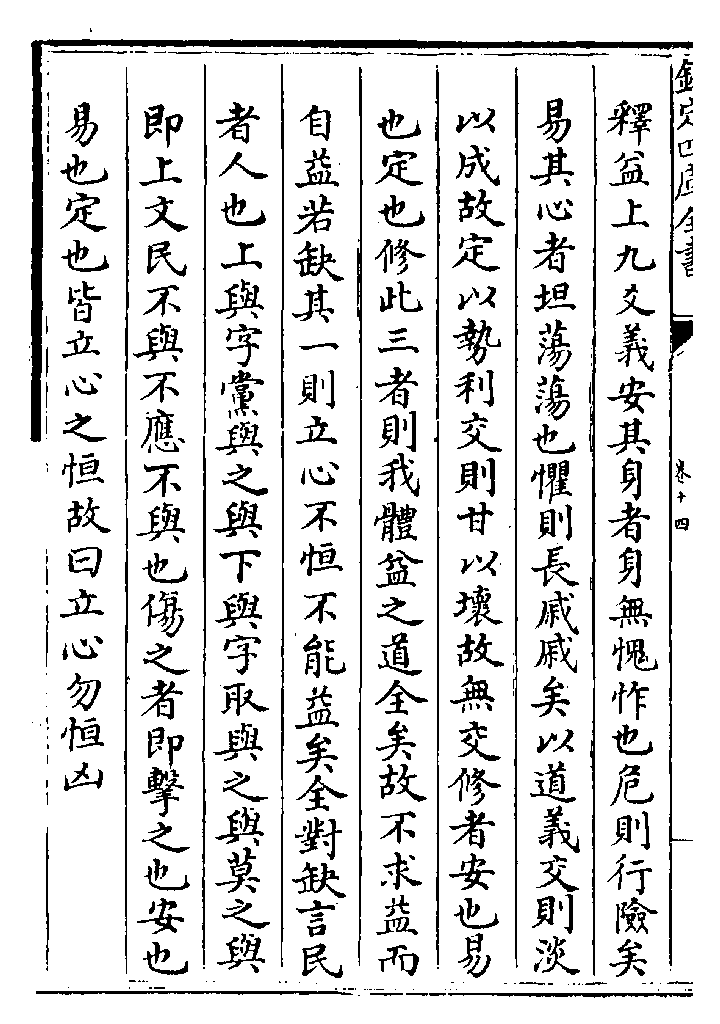 欽定四庫全書
卷十四
釋益上九爻義安其身者身無愧怍也危則行險矣
易其心者坦蕩蕩也懼則長戚戚矣以道義交則淡
以成故定以勢利交則甘以壞故無交修者安也易
也定也修此三者則我體益之道全矣故不求益而
自益若缺其一則立心不恒不能益矣全對缺言民
者人也上與字黨與之與下與字取與之與莫之與
即上文民不與不應不與也傷之者即擊之也安也
易也定也皆立心之恒故曰立心勿恒凶